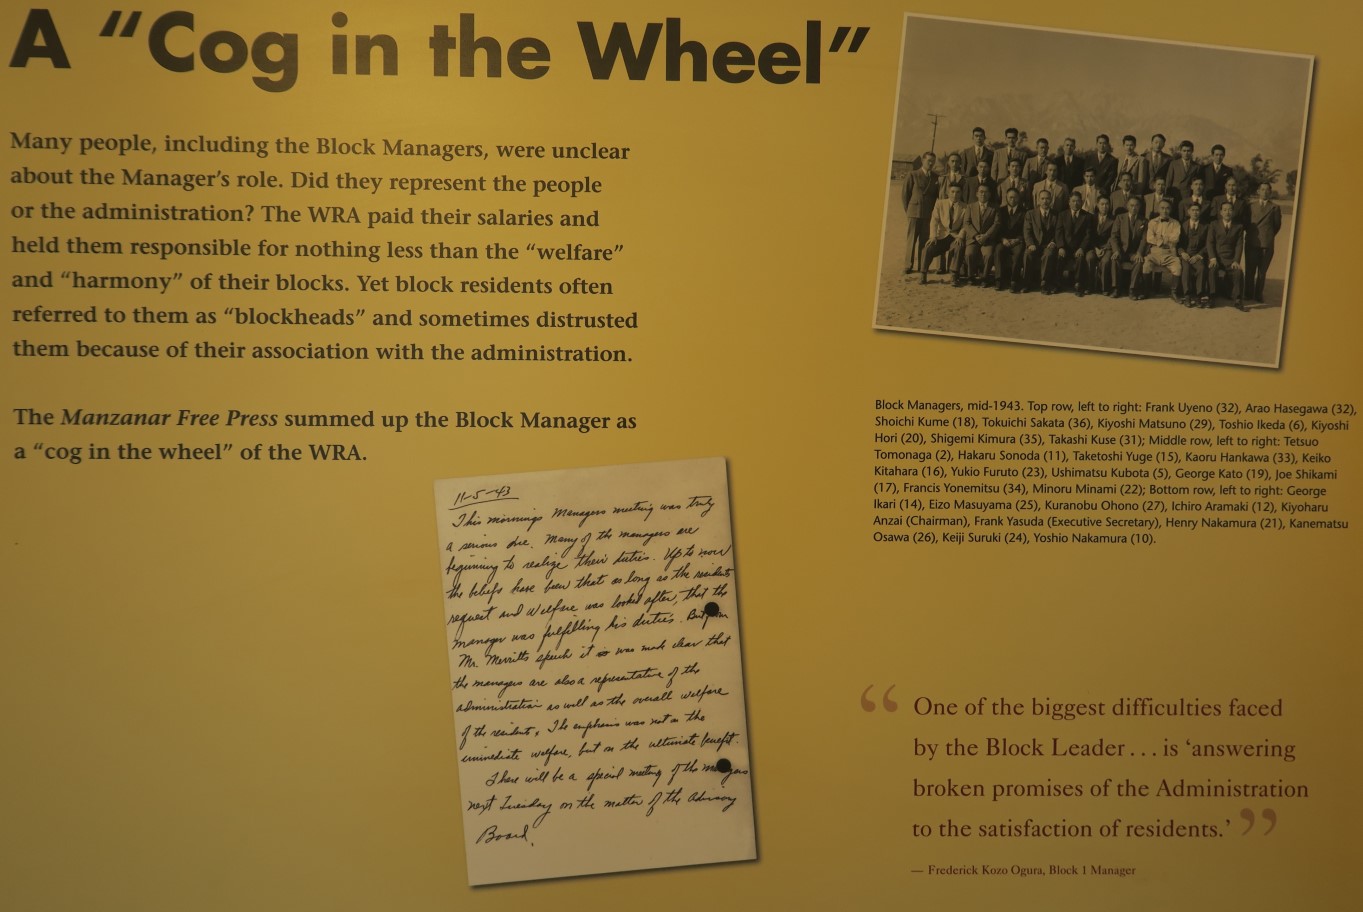 A “Cog in the Wheel”
Many people, including the Block Managers, were unclear
about the Manager’s role. Did they represent the people
or the administration? The WRA paid their salaries and
held them responsible for nothing less than the “welfare”
and “harmony” of their blocks. Yet block residents often
referred to them as “blockheads” and sometimes distrusted
them because of their association with the administration.
The Manzanar Free Press summed up the Block Manager as
a “cog in the wheel” of the WRA.
11-5-43
This mornings Managers meeting was truly
a serious one. Many of the managers are
beginning to realize their duties. Up to now
the beliefs have been that as long as the residents
request and welfare was looked after, that the
manager was fulfilling his duties. But from
Mr. Merritts speech it was made clear that
the managers are also a representative of the
administration as well as the overall welfare
of the resident. The emphasis was not on the
immediate welfare, but on the ultimate benefit.
There will be a special meeting of the managers
next Tuesday on the matter of the Advisory
Board.
Block Managers, mid-1943. Top row, left to right: Frank Uyeno (32), Arao Hasegawa (32),
Shoichi Kume (18), Tokuichi Sakata (36), Kiyoshi Matsuno (29), Toshio Ikeda (6), Kiyoshi
Hori (20), Shigemi Kimura (35), Takashi Kuse (31); Middle row, left to right: Tetsuo
Tomonaga (2), Hakaru Sonoda (11), Taketoshi Yuge (15), Kaoru Hankawa (33), Keiko
Kitahara (16), Yukio Furuto (23), Ushimatsu Kubota (5), George Kato (19), Joe Shikami
(17), Francis Yonemitsu (34), Minoru Minami (22); Bottom row, left to right: George
Ikari (14), Eizo Masuyama (25), Kuranobu Ohono (27), Ichiro Aramaki (12), Kiyoharu
Anzai (Chairman), Frank Yasuda (Executive Secretary), Henry Nakamura (21), Kanematsu
Osawa (26), Keiji Suruki (24), Yoshio Nakamura (10).
“ One of the biggest difficulties faced
by the Block Leader . . . is ‘answering
broken promises of the Administration
to the satisfaction of residents.’ ”
— Frederick Kozo Ogura, Block 1 Manager